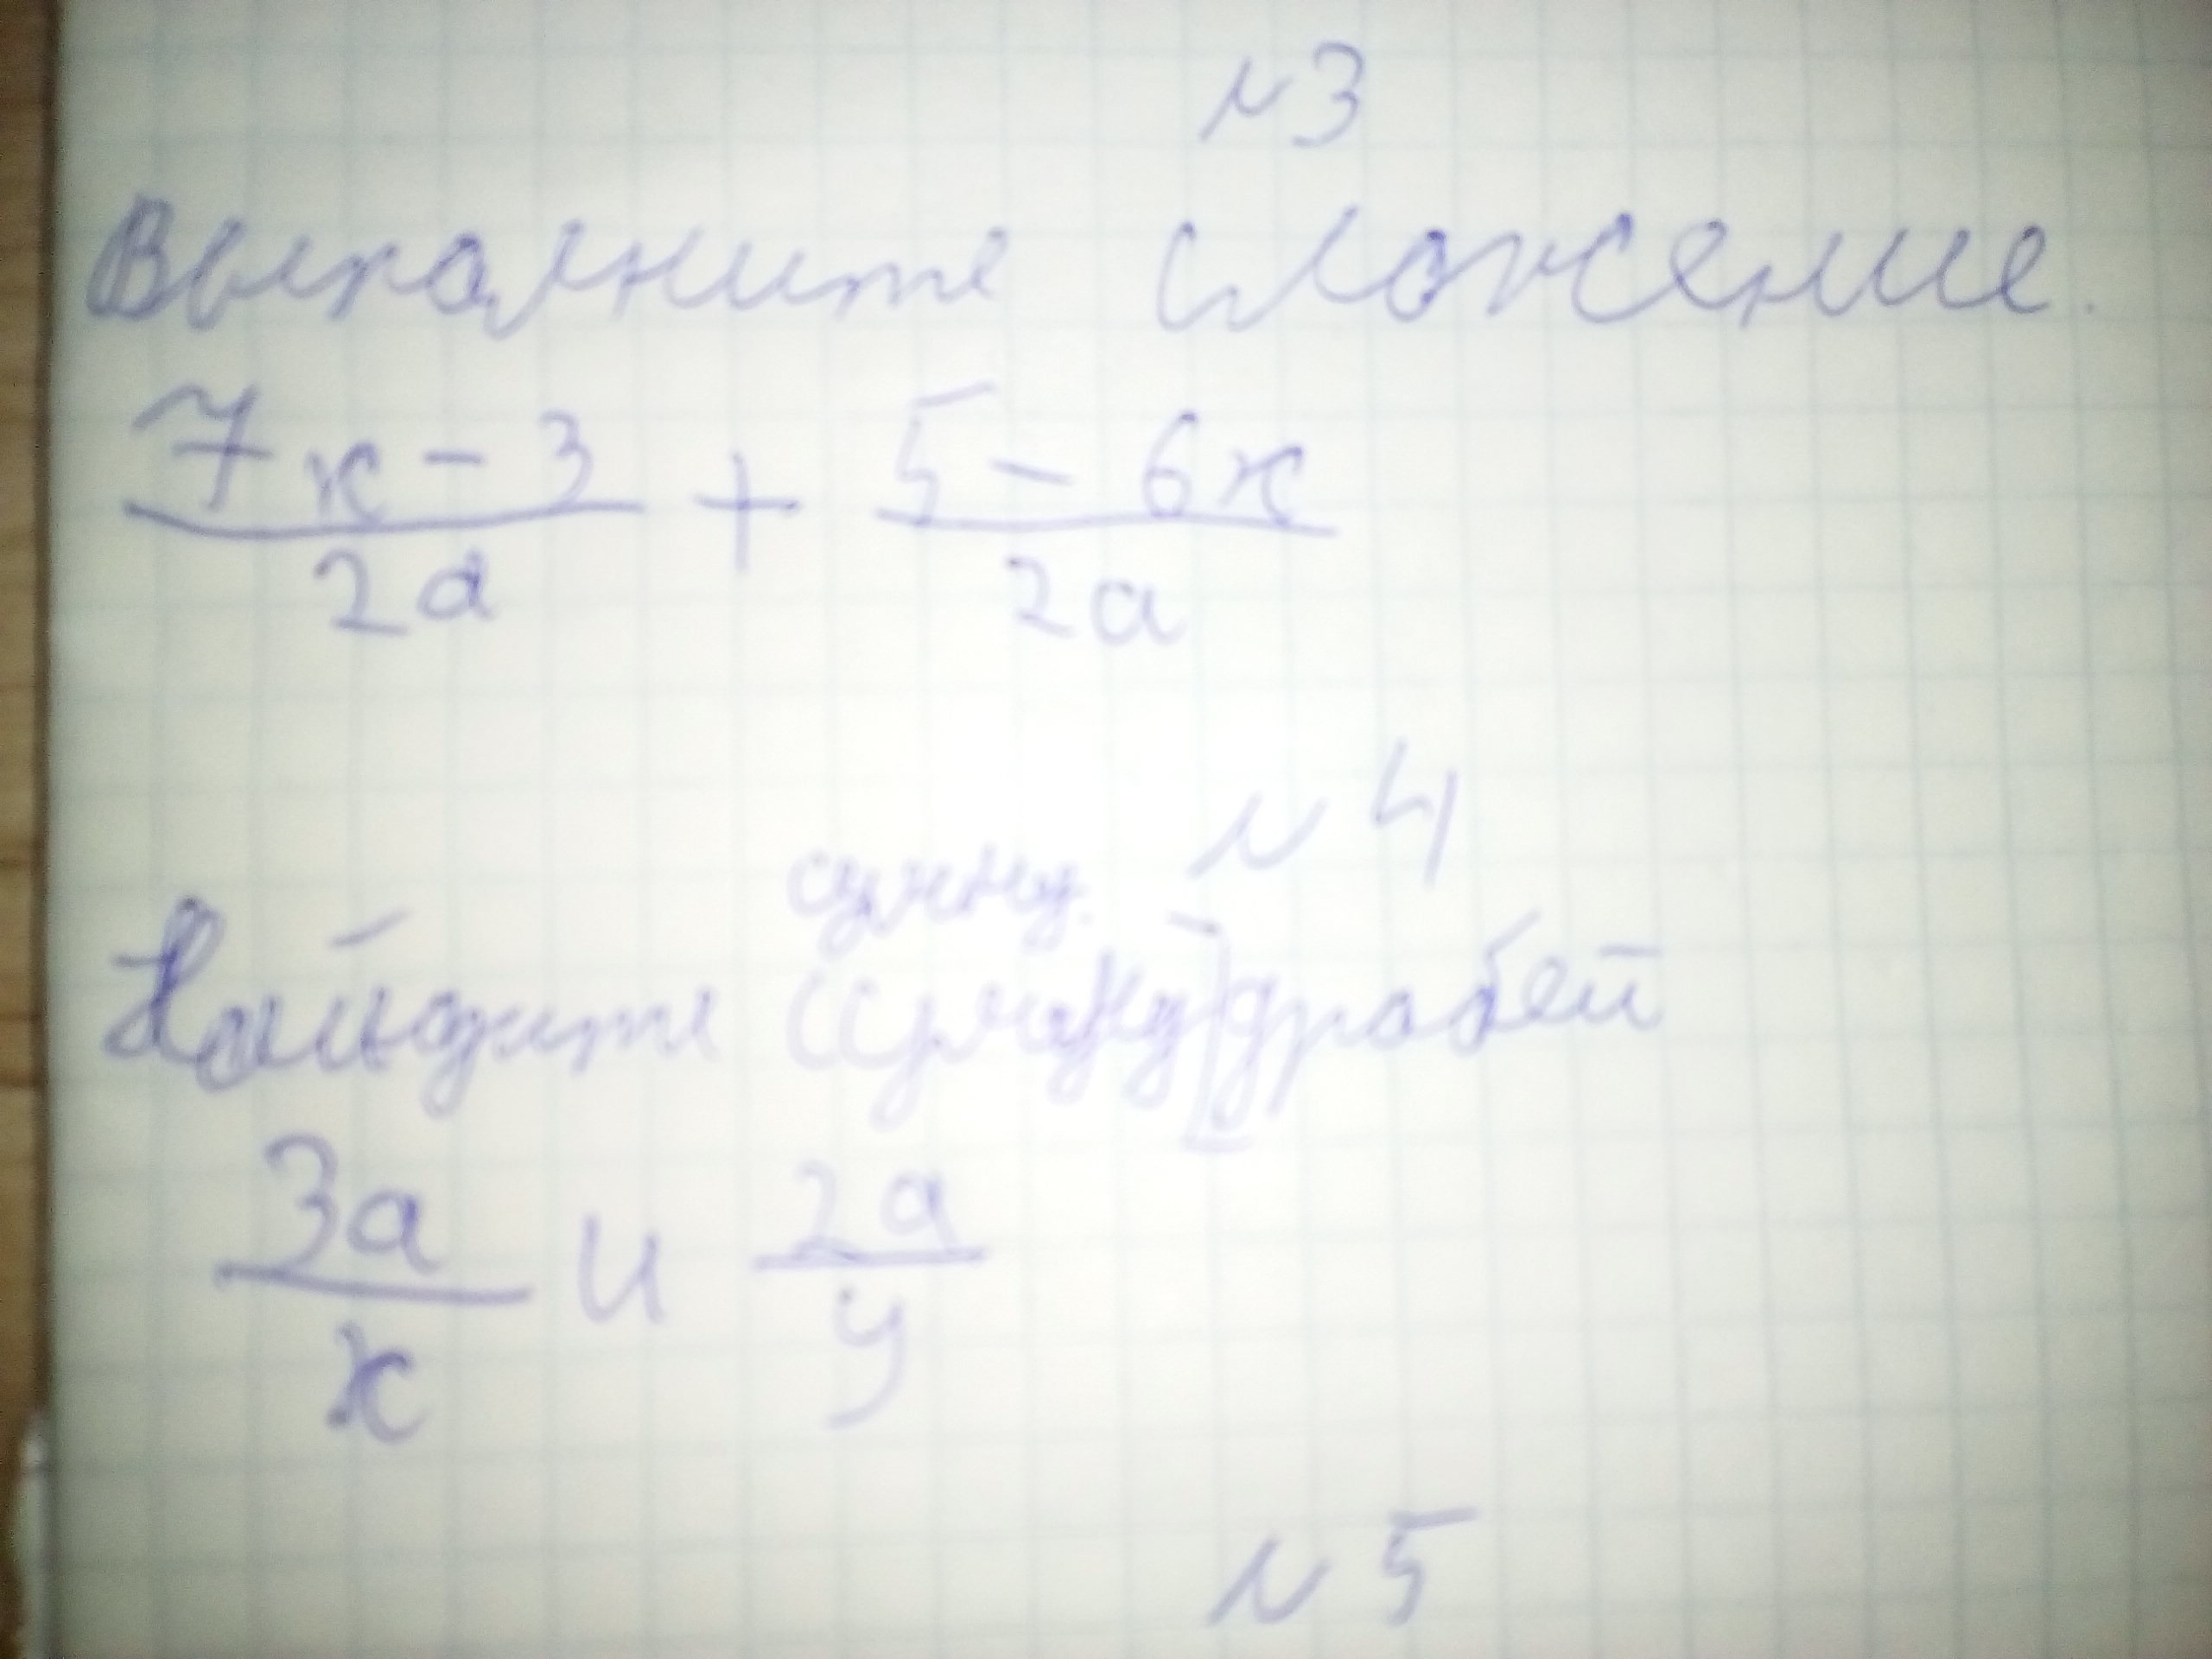 №3
Выполните сложение.
7x - 3 / 2a + 5 - 6x / 2a
№4
сумму.
Найдите дробей
3a / x и 2a / y
№5